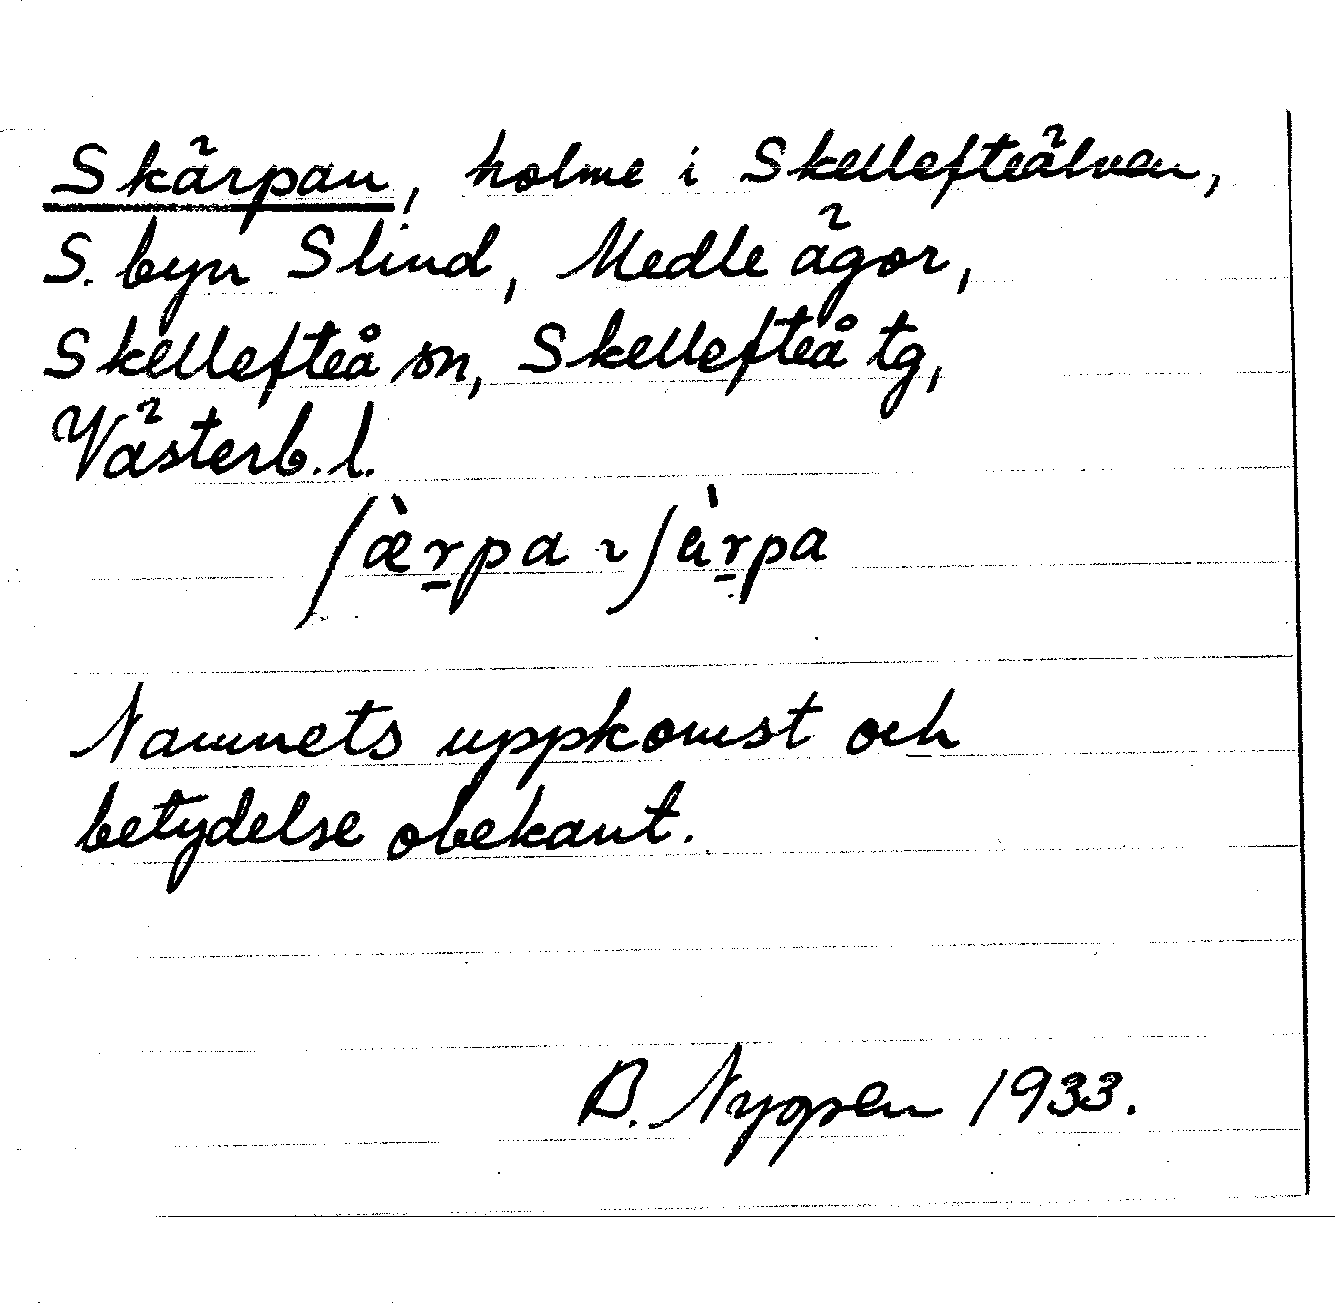 Skärpan, holme i Skellefteälven,
S. byn Slind, Medle ägor,
Skellefteå sn, Skellefteå tg,
Västerb. l.
ʃæ̀r̲pa ~ ʃàr̲pa
Namnets uppkomst och
betydelse obekant.
B. Nygren 1933.